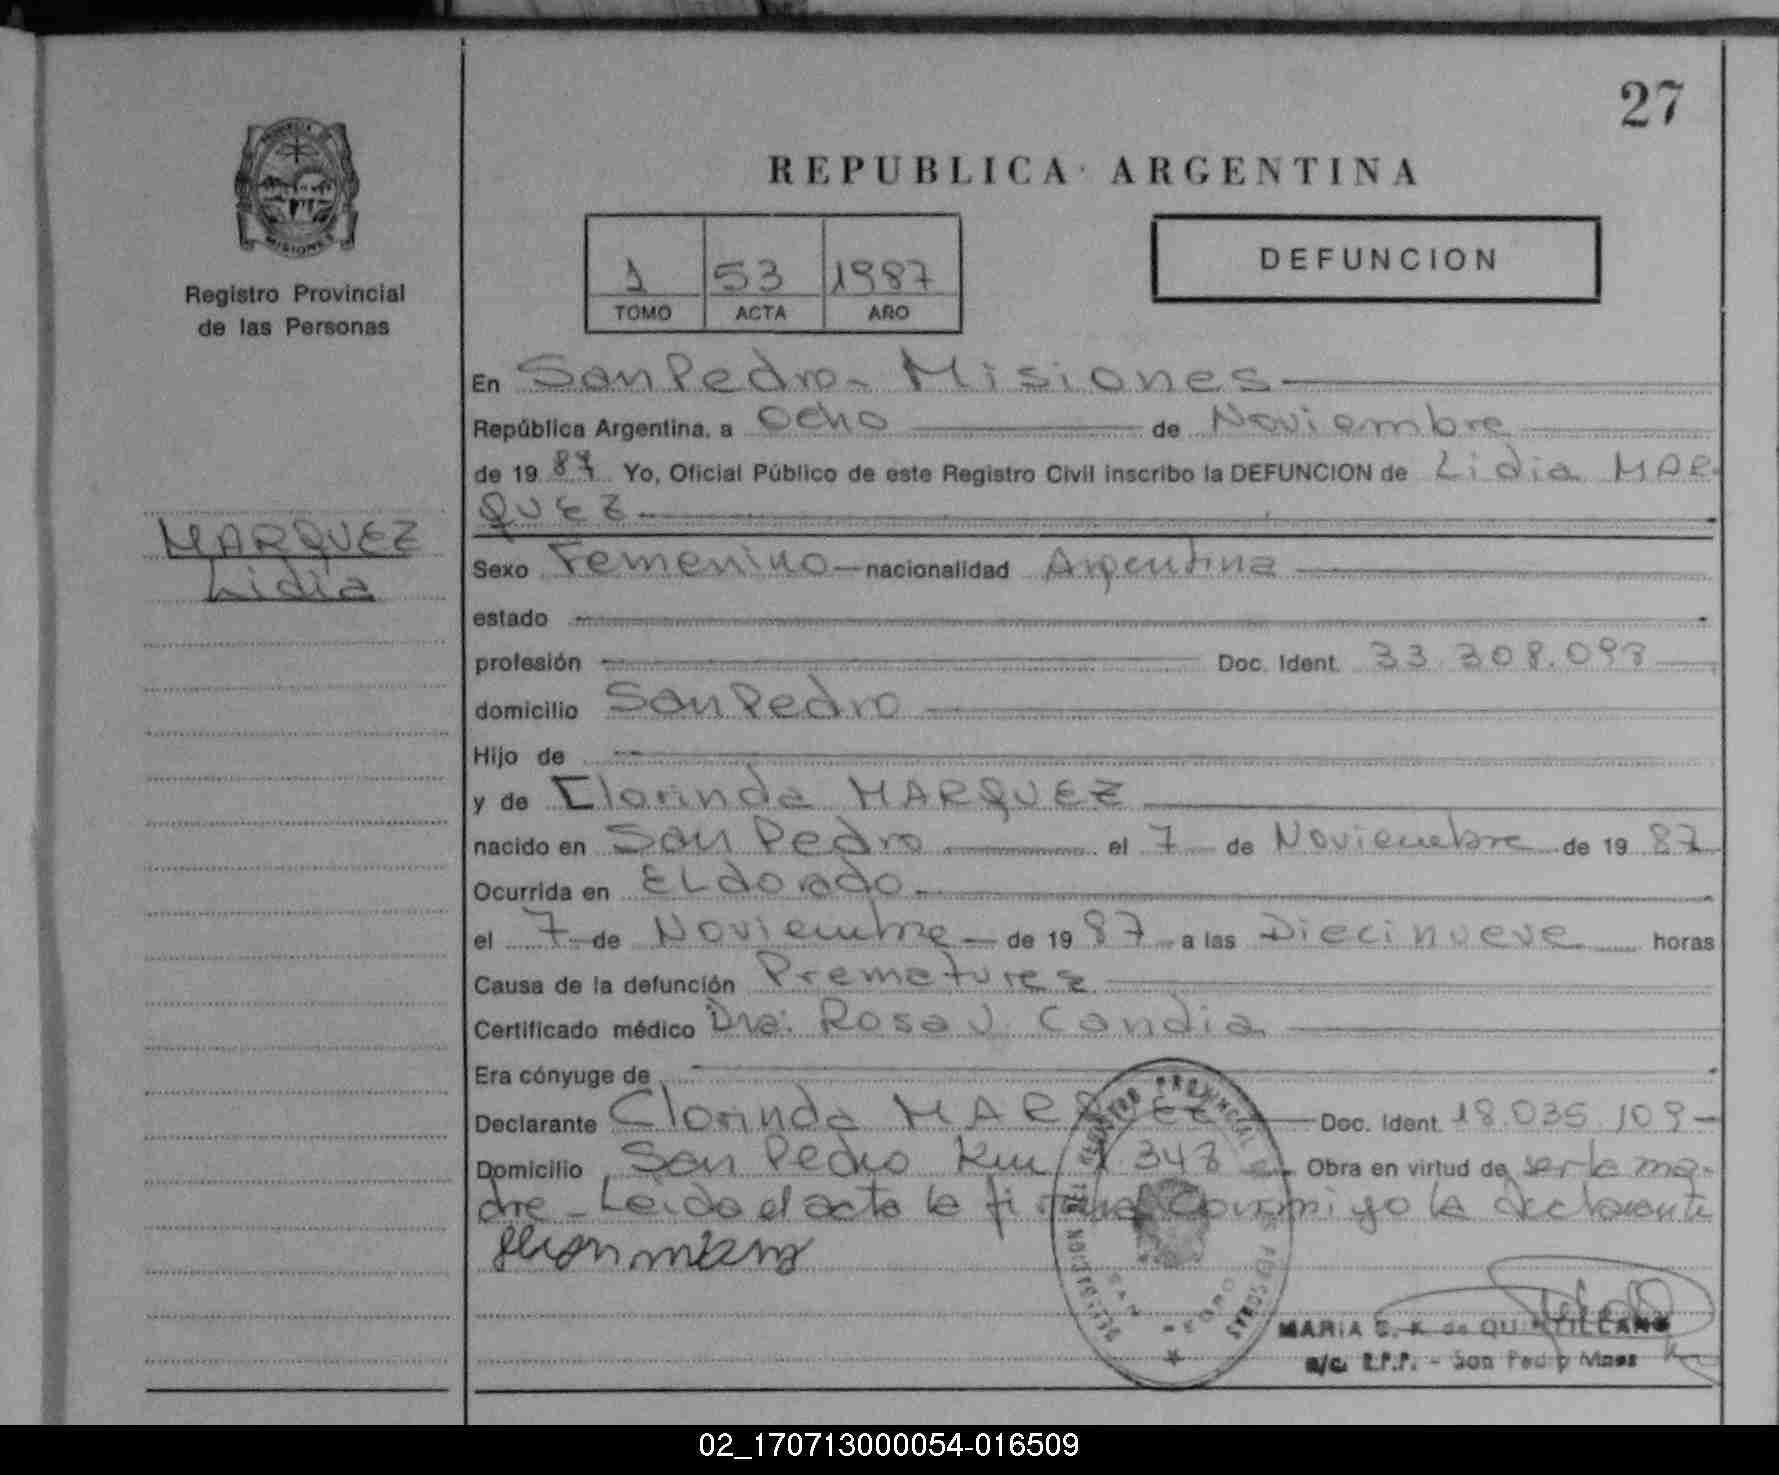 27
REPUBLICA ARGENTINA
PROVINCIA DE
MISIONES
Registro Provincial
de las Personas
1 53 1987
TOMO ACTA AÑO
DEFUNCION
En San Pedro - Misiones
República Argentina, a Ocho de Noviembre
de 19 87 Yo, Oficial Público de este Registro Civil inscribo la DEFUNCION de Lidia MAR-
QUEZ
MARQUEZ
Lidia
Sexo Femenino nacionalidad Argentina
estado
profesión Doc. Ident. 33.308.093
domicilio San Pedro
Hijo de
y de Clorinda MARQUEZ
nacido en San Pedro el 7 de Noviembre de 19 87
Ocurrida en ELdorado
el 7 de Noviembre de 19 87 a las Diecinueve horas
Causa de la defunción Prematurez
Certificado médico Dra. Rosa J. Candia
Era cónyuge de
Declarante Clorinda MARQUEZ Doc. Ident. 18.035.109
Domicilio San Pedro Km 348 Obra en virtud de ser la ma-
dre - Leida el acta la firma conmigo la declarante
REGISTRO PROVINCIAL DE LAS PERSONAS
DELEGACION
SAN PEDRO
MARIA S. K. de QUINTILLANO
a/c. R.P.P. - San Pedro Mnes
02_170713000054-016509